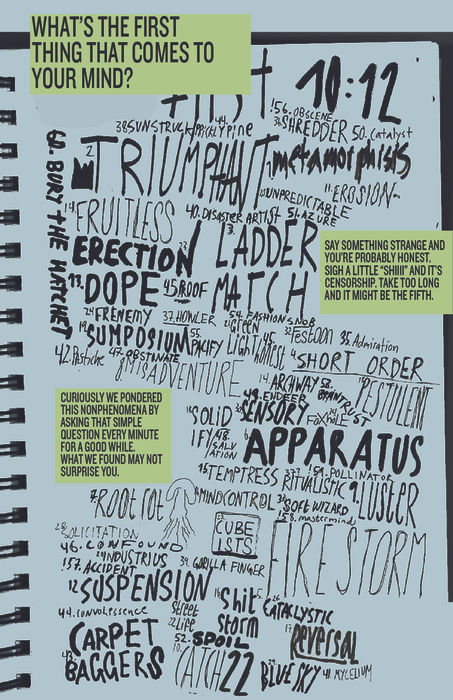 WHAT'S THE FIRST
THING THAT COMES TO
YOUR MIND?
10:12
56. OBSCENE
38 SUNSTRUCK
SHREDDER 50. catalyst
60. BURY THE HATCHET
2 TRIUMPHANT
metamorphisis
UNPREDICTABLE
11. EROSION
FRUITLESS
40. DISASTER ARTIST 51. AZURE
ERECTION
3. LADDER
MATCH
SAY SOMETHING STRANGE AND
YOU'RE PROBABLY HONEST.
SIGH A LITTLE "SHIIII" AND IT'S
CENSORSHIP. TAKE TOO LONG
AND IT MIGHT BE THE FIFTH.
13. DOPE
45. ROOF
FRENEMY
37. HOWLER
54. FASHION SNOB
Green
32 Festoon
35. Admiration
SYMPOSIUM
55. PACIFY
Light
honest
42. Pastiche
47. OBSTINATE
8. MISADVENTURE
4 SHORT ORDER
14. ARCHWAY
52. BRAIN TRUST
PESTULENT
CURIOUSLY WE PONDERED
THIS NONPHENOMENA BY
ASKING THAT SIMPLE
QUESTION EVERY MINUTE
FOR A GOOD WHILE.
WHAT WE FOUND MAY NOT
SURPRISE YOU.
SOLID
IFY
48. SALVATION
49. ENDEER
SENSORY
FOXHOLE
6 APPARATUS
TEMPTRESS
RITUALISTIC
59. POLLINATOR
9. LUSTER
7 ROOT rot
MINDCONTROL
SOFT WIZARD
58. mastermind
CUBE
ISTS
FIRE STORM
SOLICITATION
46. CONFOUND
INDUSTRIUS
157. ACCIDENT
34. GORILLA FINGER
12 SUSPENSION
44. convolessence
Street
Life
Shit
Storm
CATACLYSTIC
CARPET
BAGGERS
52. SPOIL
10. CATCH 22
Reversal
BLUE SKY
41. MYCELIUM